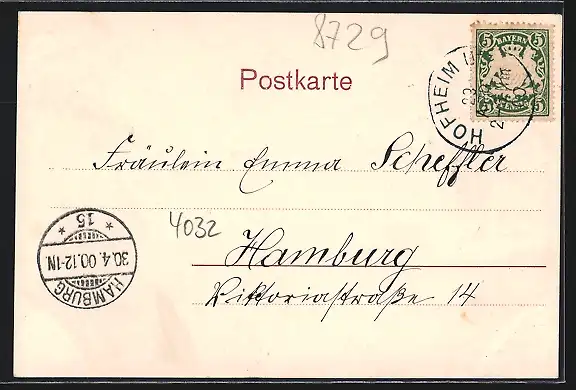 8729
Postkarte
5 BAYERN 5
5 5
HOFHEIM
Fräulein Emma Scheffler
4032
Hamburg
Viktoriastraße 14
* 15 *
30.4.00.12-1N.
HAMBURG